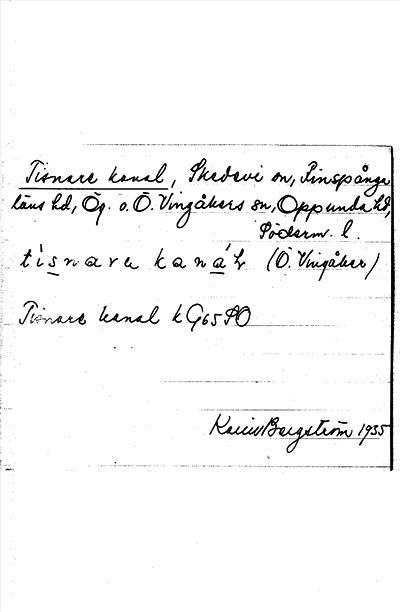 Tisnare kanal, Skedevi sn, Finspånga
läns hd, Ög. o. Ö. Vingåkers sn, Oppunda hd,
Söderm. l.
tisnara kanáł (Ö. Vingåker)
Tisnare kanal k G65 SO
Karin Bergström 1935